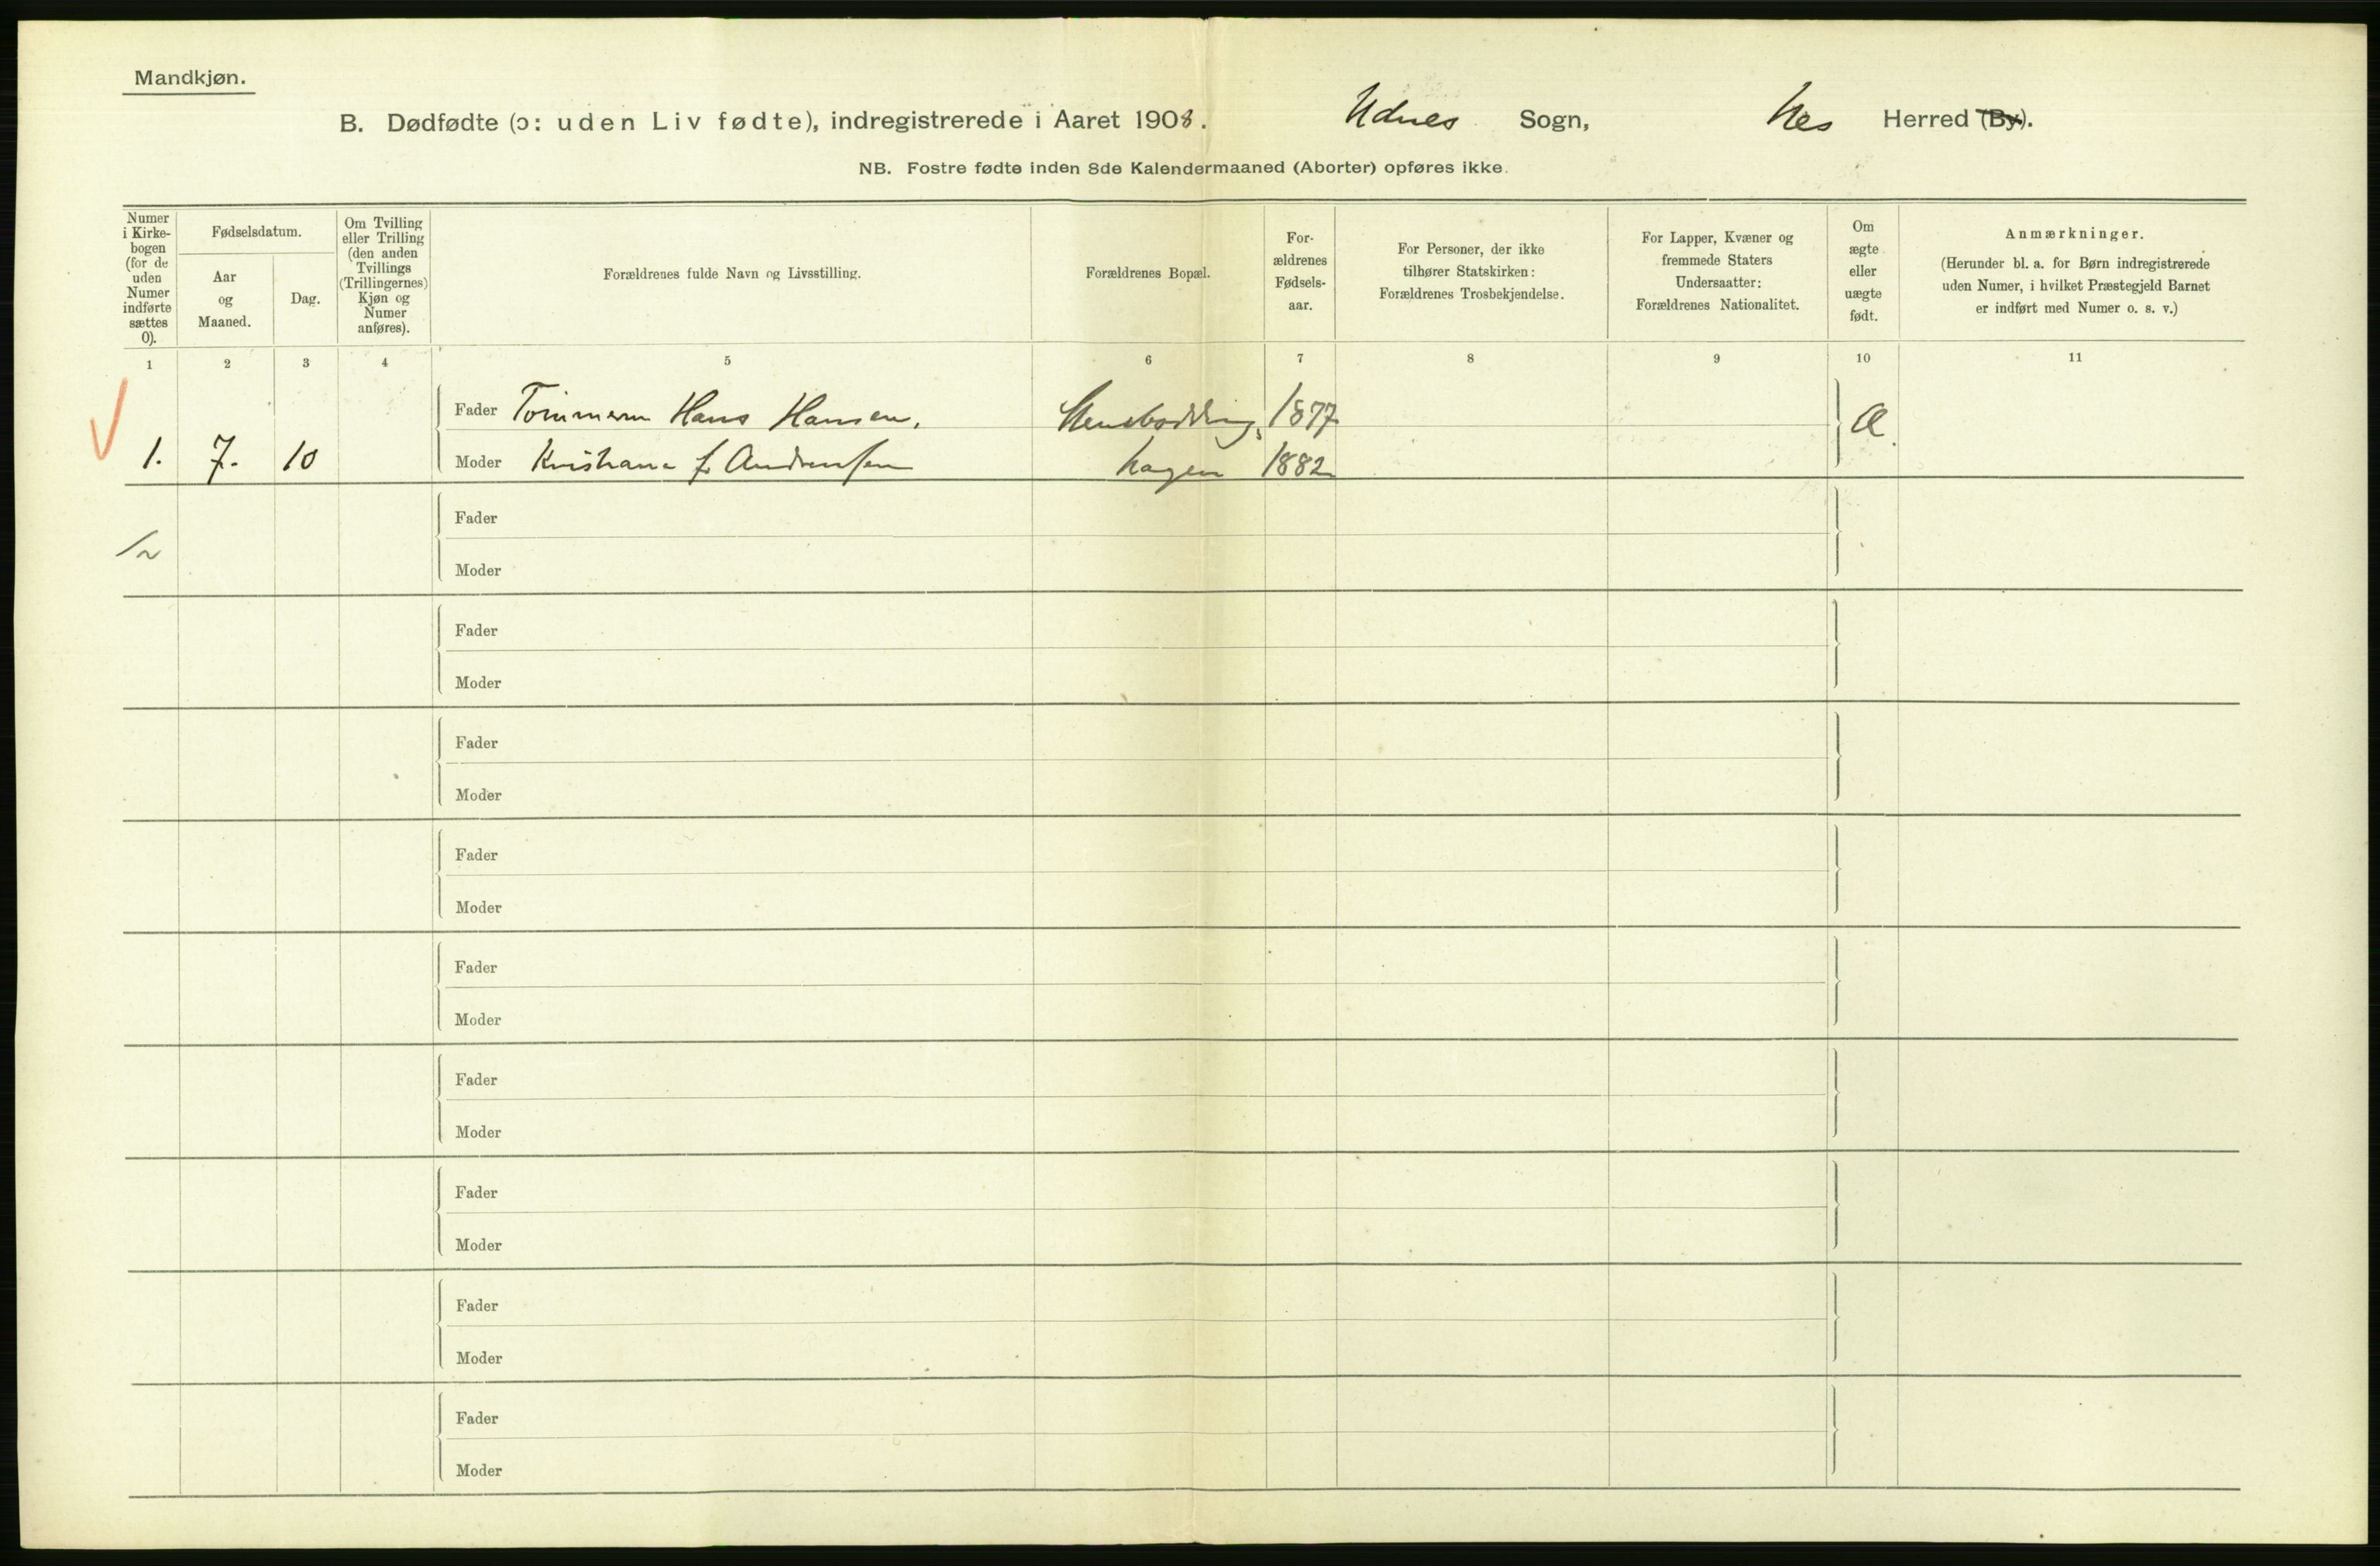 Mandkjøn.
B. Dødfødte (ɔ: uden Liv fødte), indregistrerede i Aaret 1908. Udnes Sogn, Nes Herred (By).
NB. Fostre fødte inden 8de Kalendermaaned (Aborter) opføres ikke.
Numer
i Kirke-
bogen
(for de
uden
Numer
indførte
sættes
0).
Fødselsdatum.
Aar
og
Maaned.
Dag.
Om Tvilling
eller Trilling
(den anden
Tvillings
(Trillingernes)
Kjøn og
Numer
anføres).
Forældrenes fulde Navn og Livsstilling.
Forældrenes Bopæl.
For-
ældrenes
Fødsels-
aar.
For Personer, der ikke
tilhører Statskirken:
Forældrenes Trosbekjendelse.
For Lapper, Kvæner og
fremmede Staters
Undersaatter:
Forældrenes Nationalitet.
Om
ægte
eller
uægte
født.
Anmærkninger.
(Herunder bl. a. for Børn indregistrerede
uden Numer, i hvilket Præstegjeld Barnet
er indført med Numer o. s. v.)
1 2 3 4 5 6 7 8 9 10 11
Fader Tømmerm Hans Hansen, 1877 Æ.
1. 7. 10 Moder Kristiane f. Andersen hagen 1882
Fader
Moder
Fader
Moder
Fader
Moder
Fader
Moder
Fader
Moder
Fader
Moder
Fader
Moder
Fader
Moder
Fader
Moder